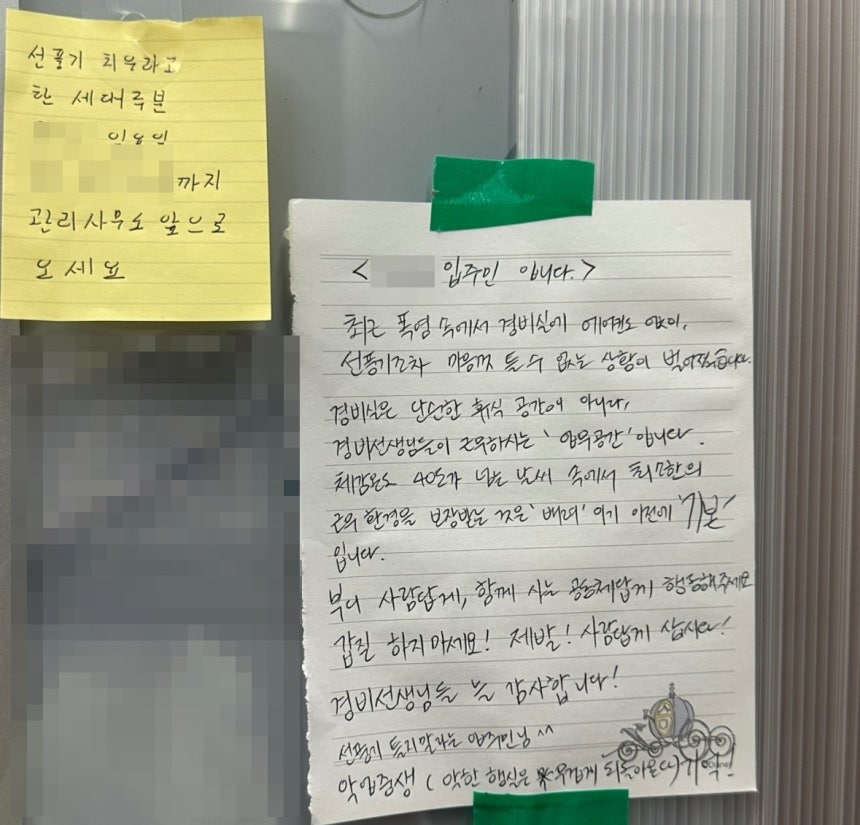 선풍기 치우라고
한 세대주분
까지
관리사무소 앞으로
오세요
< 입주인 입니다.>
최근 폭염 속에서 경비실에 에어컨도 없이,
선풍기조차 마음껏 틀 수 없는 상황이 벌어졌습니다.
경비실은 단순한 휴식 공간이 아니라,
경비선생님들이 근무하시는 '업무공간' 입니다.
체감온도 40도가 넘는 날씨 속에서 최소한의
근무환경을 보장받는 것은 '배려' 이기 이전에 '기본'
입니다.
부디 사람답게, 함께 사는 공동체답게 행동해주세요
갑질 하지마세요! 제발! 사람답게 삽시다!
경비선생님들 늘 감사합니다!
선풍기 틀지말라는 입주민님 ^^
악업중생 ( 악한 행실은 무겁게 되돌아온다)
Disney